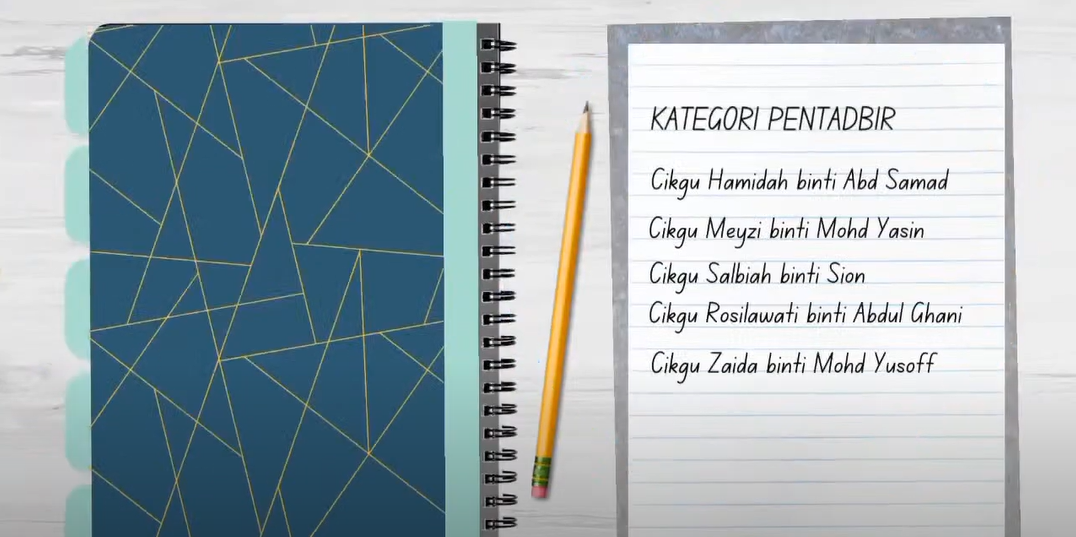 KATEGORI PENTADBIR
Cikgu Hamidah binti Abd Samad
Cikgu Meyzi binti Mohd Yasin
Cikgu Salbiah binti Sion
Cikgu Rosilawati binti Abdul Ghani
Cikgu Zaida binti Mohd Yusoff